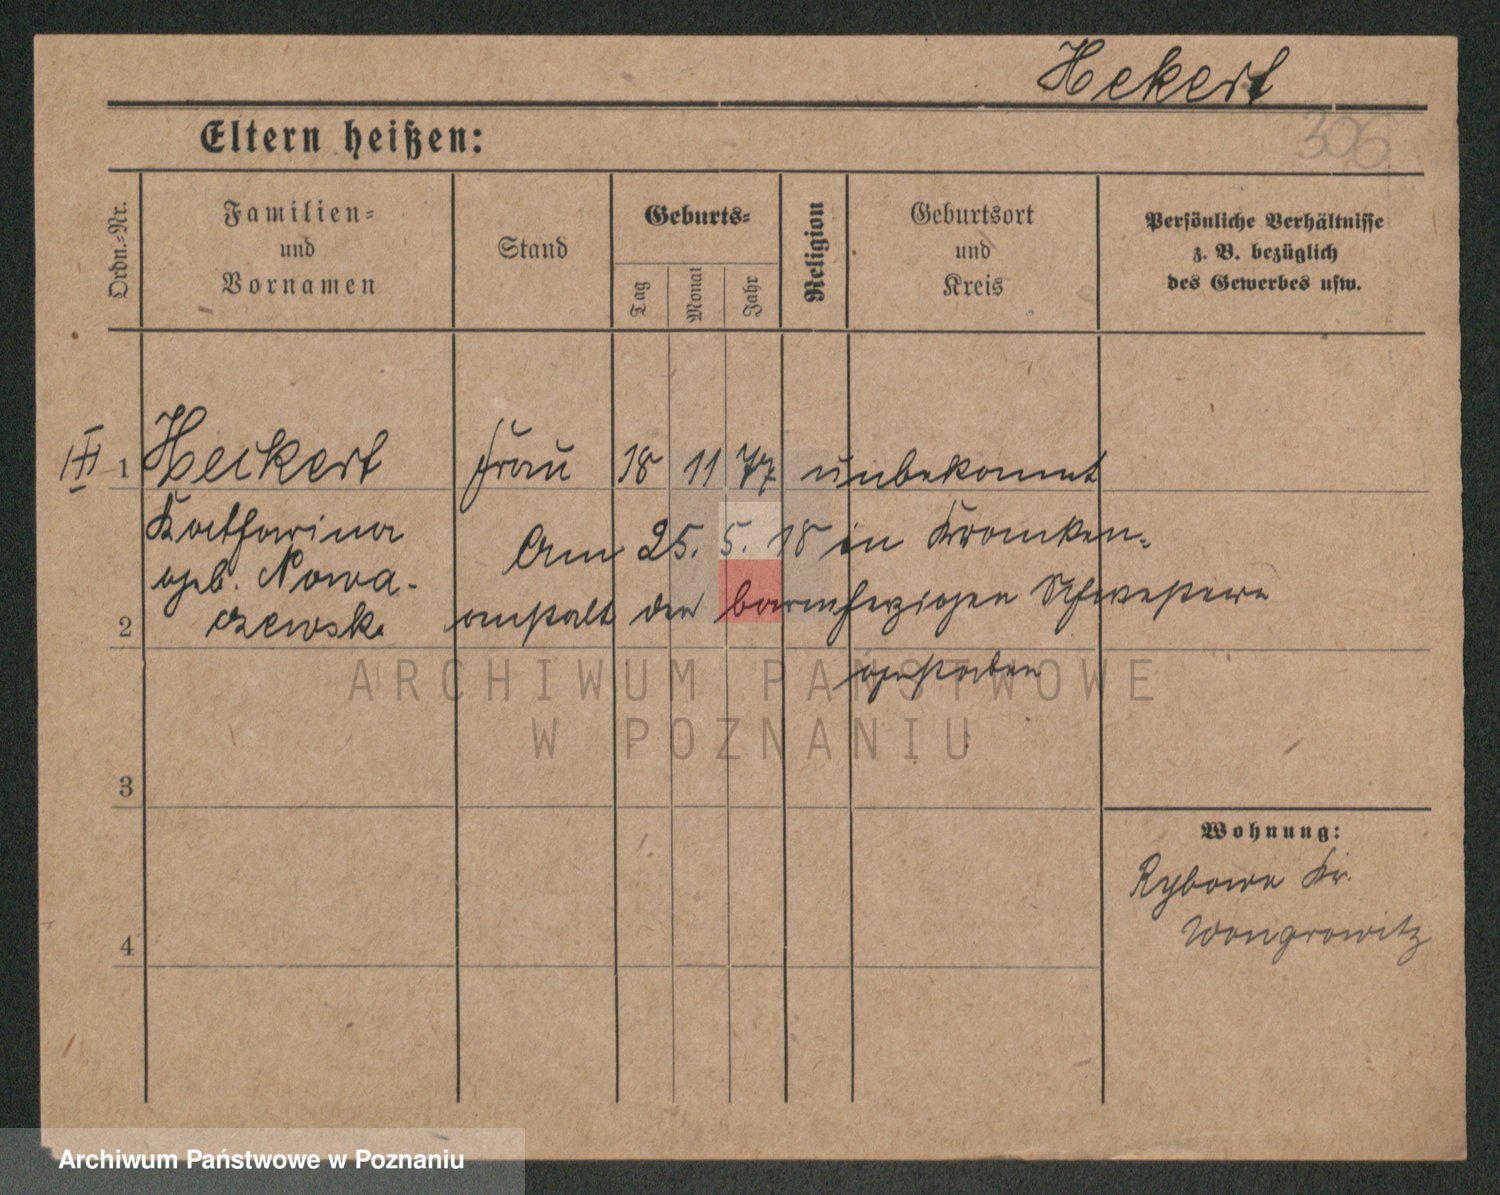 Hekert
306
Eltern heißen:
Ordn.-Nr.
Familien-
und
Vornamen
Stand
Geburts-
Tag
Monat
Jahr
Religion
Geburtsort
und
Kreis
Persönliche Verhältnisse
z. B. bezüglich
des Gewerbes usw.
III 1 Heckert Frau 18 11 77 unbekannt
Katharina
Am 25. 5. 18 in Kranken-
geb. Nowa-
anstalt der barmherzigen Schwestern
2 czewska
gestorben
ARCHIWUM PAŃSTWOWE
W POZNANIU
3
Wohnung:
Rybowo Kr.
Wongrowitz
4
Archiwum Państwowe w Poznaniu